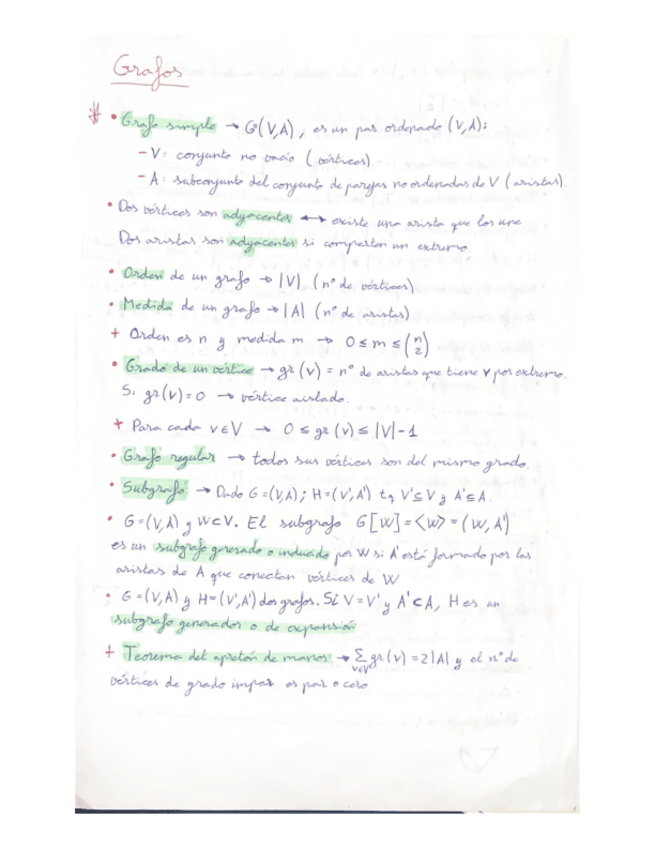 Grafos
# • Grafo simple → G(V,A), es un par ordenado (V,A):
- V: conjunto no vacío (vértices)
- A: subconjunto del conjunto de parejas no ordenadas de V (aristas).
• Dos vértices son adyacentes ↔ existe una arista que los une
Dos aristas son adyacentes si comparten un extremo.
• Orden de un grafo → |V| (nº de vértices)
• Medida de un grafo → |A| (nº de aristas)
+ Orden es n y medida m → 0 ≤ m ≤ (n 2)
• Grado de un vértice → gr(v) = nº de aristas que tiene v por extremo.
Si gr(v)=0 → vértice aislado.
+ Para cada v∈V → 0 ≤ gr(v) ≤ |V|-1
• Grafo regular → todos sus vértices son del mismo grado.
• Subgrafo → Dado G=(V,A); H=(V',A') tq V'⊆V y A'⊆A.
• G=(V,A) y W⊂V. El subgrafo G[W]=<W>=(W,A')
es un subgrafo generado o inducido por W si A' está formado por las
aristas de A que conectan vértices de W
• G=(V,A) y H=(V',A') dos grafos. Si V=V' y A'⊂A, H es un
subgrafo generador o de expansión
+ Teorema del apretón de manos → ∑ v∈V gr(v)=2|A| y el nº de
vértices de grado impar es par o cero